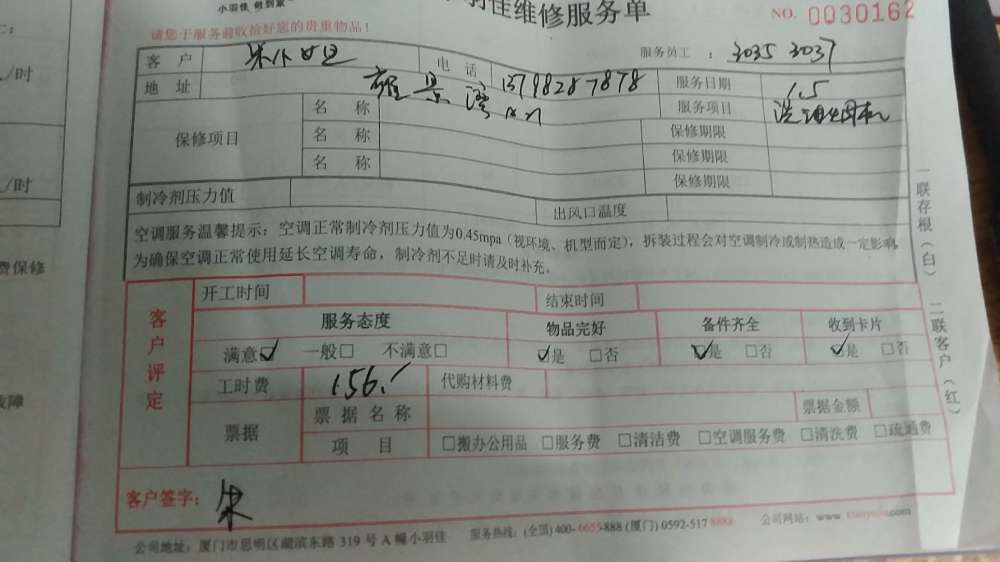 小羽佳 做到家
羽佳维修服务单
NO. 0030162
请您于服务前收拾好您的贵重物品!
服务员工：3035 3037
客户
电话 13798287878
服务日期 1.5
地址
服务项目 洗油烟机
保修项目
名称 保修期限
名称 保修期限
名称 保修期限
制冷剂压力值 出风口温度
空调服务温馨提示：空调正常制冷剂压力值为0.45mpa（视环境、机型而定），拆装过程会对空调制冷或制热造成一定影响，
为确保空调正常使用延长空调寿命，制冷剂不足时请及时补充。
客户评定
开工时间 结束时间
服务态度 物品完好 备件齐全 收到卡片
满意☑ 一般□ 不满意□ ☑是 □否 ☑是 □否 ☑是 □否
工时费 156. 代购材料费
票据
票据名称 票据金额
项目 □搬办公用品 □服务费 □清洁费 □空调服务费 □清洗费 □疏通费
客户签字：朱
公司地址：厦门市思明区湖滨东路 319 号 A 幢小羽佳 服务热线：(全国) 400-6655-888 (厦门) 0592-517 8888 公司网站：www.xiaoyujia.com
一联存根（白） 二联客户（红）
/时
/时
费保修
故障